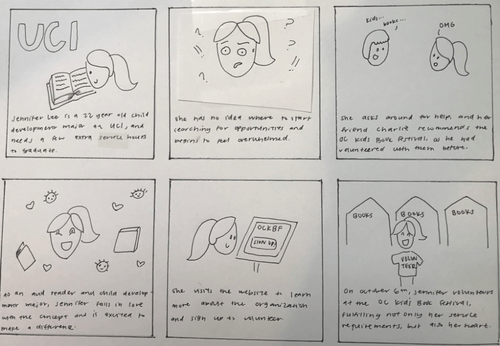 UCI
Jennifer Lee is a 22 year old child
development major at UCI, and
needs a few extra service hours
to graduate.
? ?
!! ?
? !!
She has no idea where to start
searching for opportunities and
begins to feel overwhelmed.
kids...
books...
OMG
She asks around for help, and her
friend Charise recommends the
OC Kids Book Festival, as he had
volunteered with them before.
As an avid reader and child develop-
ment major, Jennifer falls in love
with the concept and is excited to
make a difference.
OCKBF
SIGN UP!
She visits the website to learn
more about the organization
and sign up to volunteer.
BOOKS
BOOKS
BOOKS
VOLUN
TEER
On October 6th, Jennifer volunteers
at the OC Kids Book Festival,
fulfilling not only her service
requirements, but also her heart.